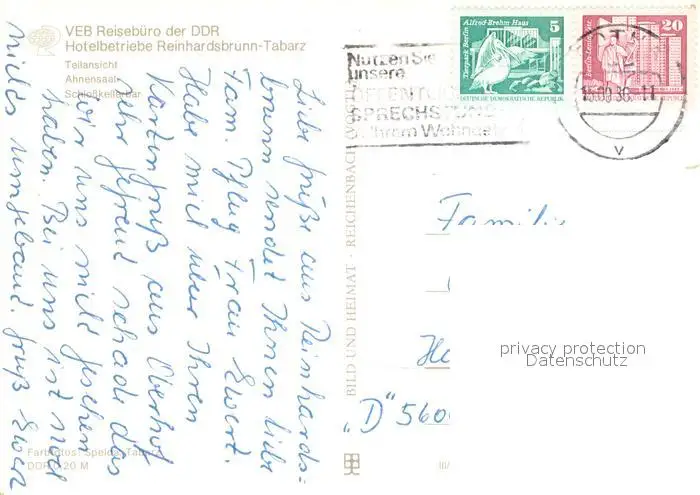 VEB Reisebüro der DDR
Hotelbetriebe Reinhardsbrunn-Tabarz
Teilansicht
Ahnensaal
Schloßkellerbar
Liebe Grüße aus Reinhards-
brunn sendet Ihnen liebe
Fam. Pflug Frau Ewert.
Habe mich über Ihren
Kartengruß aus Oberhof
sehr gefreut schade das
wir uns nicht gesehen
haben. Bei uns ist noch
nichts umgebaut. Gruß Ewert
Farbfotos: Speide, Tabarz
DDR 0,20 M
BILD UND HEIMAT · REICHENBACH (VOGTL)
III/
Nutzen Sie
unsere
ÖFFENTLICHE
SPRECHSTUNDE
Ihrem Wohngebiet
Tierpark Berlin
Alfred-Brehm-Haus
5
DEUTSCHE DEMOKRATISCHE REPUBLIK
Berlin-Leninplatz
20
DEUTSCHE DEMOKRATISCHE REPUBLIK
-11
V
Familie
He
„D" 560
privacy protection
Datenschutz